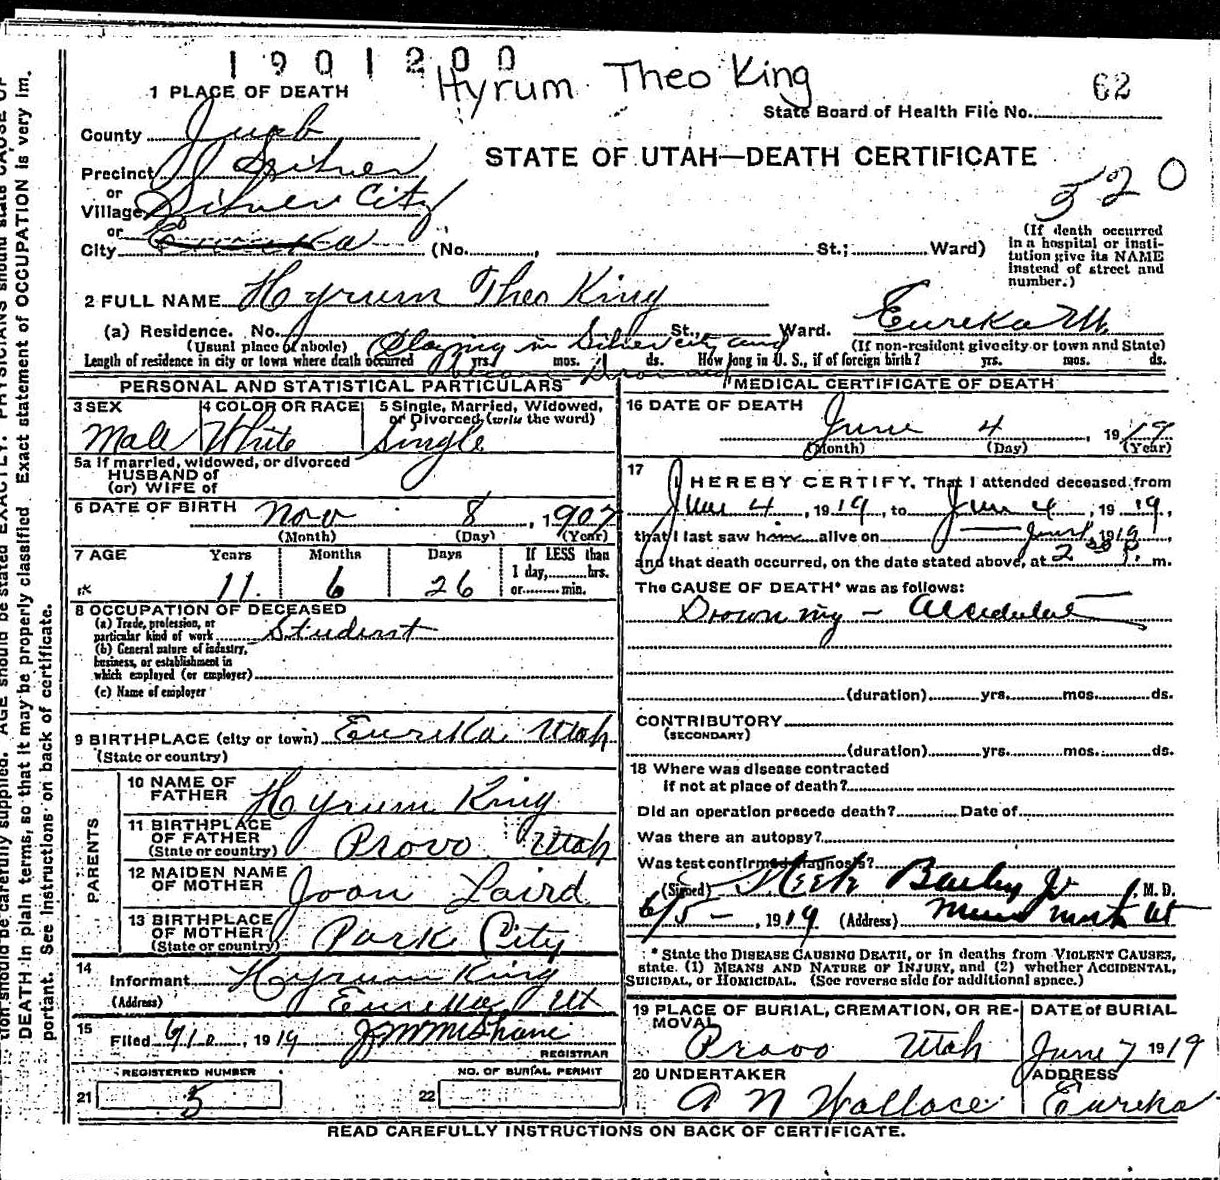 1901200
Hyrum Theo King
62
1 PLACE OF DEATH
State Board of Health File No.
County Juab
STATE OF UTAH—DEATH CERTIFICATE
Precinct Silver
520
or
Village Silver City
or
City Eureka (No. , St.; Ward)
(If death occurred in a hospital or institution give its NAME instead of street and number.)
2 FULL NAME Hyrum Theo King
(a) Residence. No. St., Ward. Eureka Ut
(Usual place of abode) Playing in Silver City and
(If non-resident give city or town and State)
Length of residence in city or town where death occurred yrs. mos. 1 ds. How long in U. S., if of foreign birth? yrs. mos. ds.
Drowned
PERSONAL AND STATISTICAL PARTICULARS
3 SEX Male
4 COLOR OR RACE White
5 Single, Married, Widowed, or Divorced (write the word) Single
5a If married, widowed, or divorced
HUSBAND of
(or) WIFE of
6 DATE OF BIRTH Nov 8, 1907
(Month) (Day) (Year)
7 AGE Years Months Days If LESS than
11 6 26 1 day, hrs.
or min.
8 OCCUPATION OF DECEASED
(a) Trade, profession, or
particular kind of work Student
(b) General nature of industry,
business, or establishment in
which employed (or employer)
(c) Name of employer
9 BIRTHPLACE (city or town) Eureka Utah
(State or country)
PARENTS
10 NAME OF FATHER Hyrum King
11 BIRTHPLACE OF FATHER (State or country) Provo Utah
12 MAIDEN NAME OF MOTHER Joan Laird
13 BIRTHPLACE OF MOTHER (State or country) Park City
14 Informant Hyrum King
(Address) Eureka Ut
15 Filed 6/10, 1919 J. M. McShane
REGISTRAR
REGISTERED NUMBER
21 5
NO. OF BURIAL PERMIT
22
MEDICAL CERTIFICATE OF DEATH
16 DATE OF DEATH
June 4, 1919
(Month) (Day) (Year)
17 I HEREBY CERTIFY, That I attended deceased from
June 4, 1919, to June 4, 1919,
that I last saw him alive on June 4, 1919,
and that death occurred, on the date stated above, at 2 30 P. m.
The CAUSE OF DEATH* was as follows:
Drowning - Accidental
(duration) yrs. mos. ds.
CONTRIBUTORY
(SECONDARY)
(duration) yrs. mos. ds.
18 Where was disease contracted
if not at place of death?
Did an operation precede death? Date of
Was there an autopsy?
Was test confirmed diagnosis?
(Signed) Steele Bailey Jr M. D.
6/5 -, 1919 (Address) Mammoth Ut
* State the DISEASE CAUSING DEATH, or in deaths from VIOLENT CAUSES,
state. (1) MEANS AND NATURE OF INJURY, and (2) whether ACCIDENTAL,
SUICIDAL, or HOMICIDAL. (See reverse side for additional space.)
19 PLACE OF BURIAL, CREMATION, OR REMOVAL
Provo Utah
DATE of BURIAL
June 7 1919
20 UNDERTAKER
A N Wallace
ADDRESS
Eureka
READ CAREFULLY INSTRUCTIONS ON BACK OF CERTIFICATE.
tion should be carefully supplied. AGE should be stated EXACTLY. PHYSICIANS should state CAUSE OF
DEATH in plain terms, so that it may be properly classified. Exact statement of OCCUPATION is very im-
portant. See instructions on back of certificate.